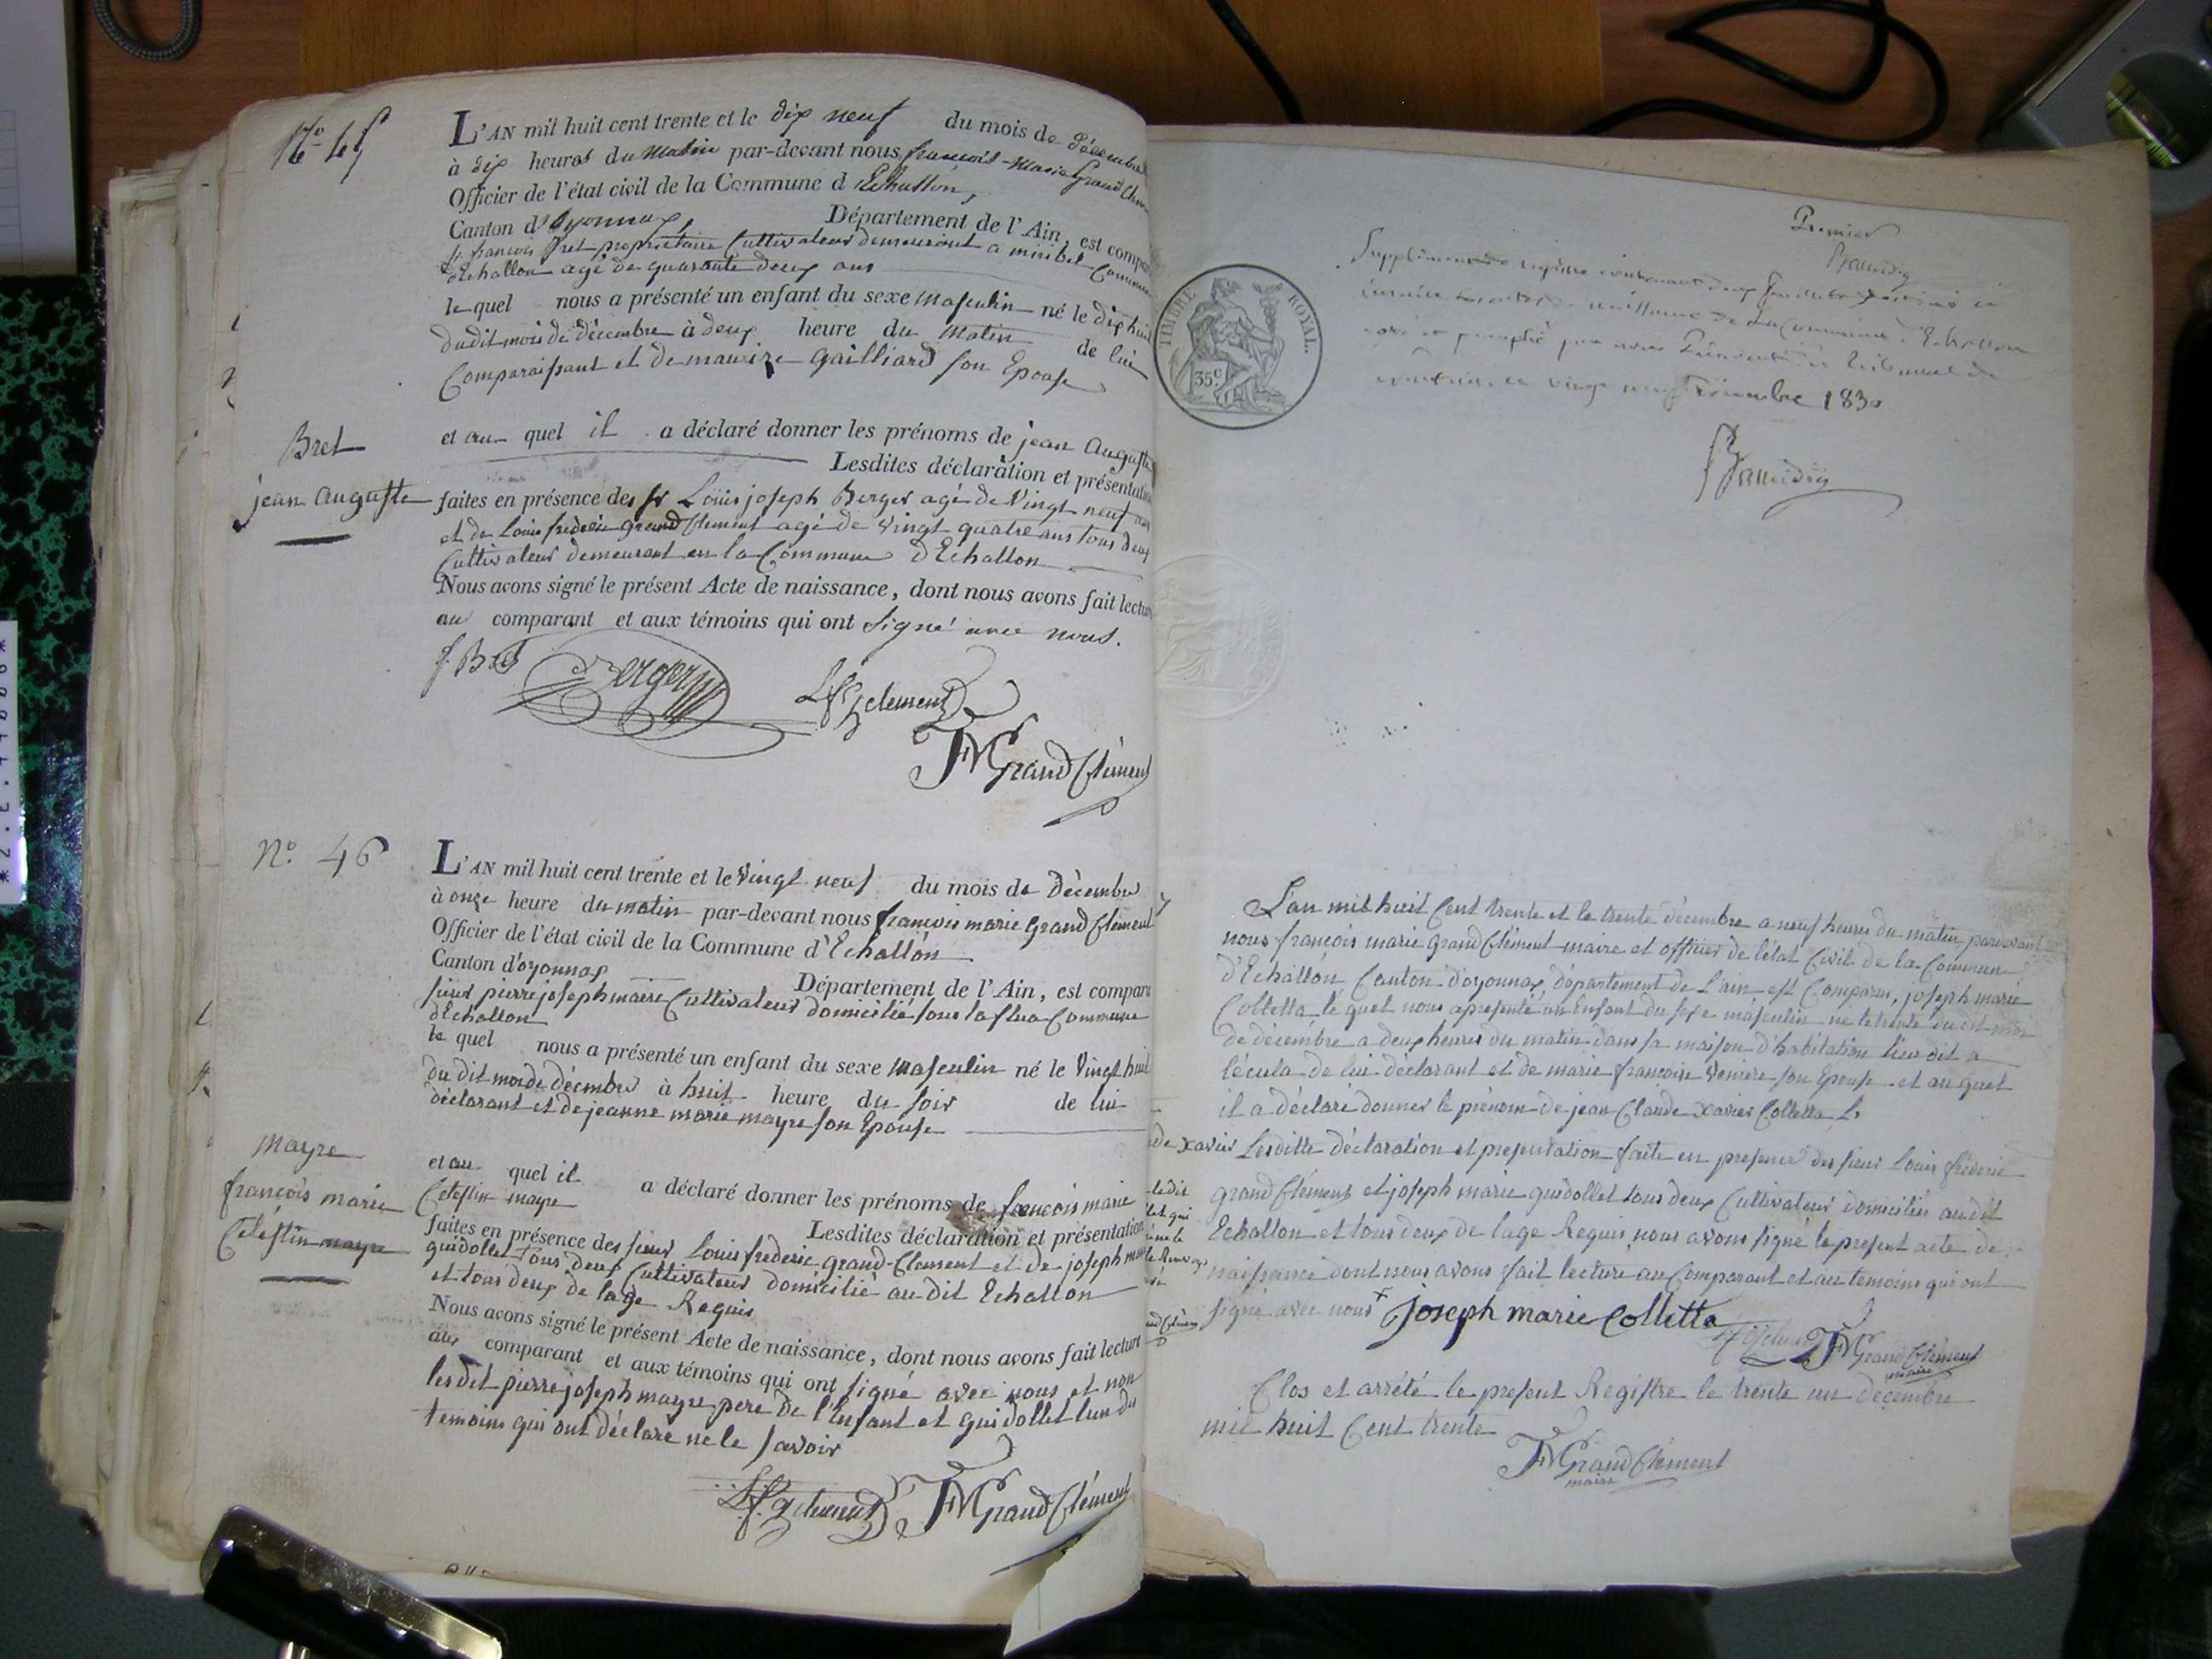 No. 45
L'AN mil huit cent trente et le dix neuf du mois de Décembre
à dix heures du Matin par-devant nous françois-Marie Grand Clem
Officier de l'état civil de la Commune d'Echallon,
Canton d'Oyonnax, Département de l'Ain, est compar
françois Bret propriétaire Cultivateur demeurant a miribel Commune
d'Echallon agé de quarante deux ans
le quel nous a présenté un enfant du sexe Masculin né le dix huit
dudit mois de décembre à deux heure du Matin de lui
Comparaissant et de maurize Gailliard son Epouse
Bret
jean Auguste
et au quel il a déclaré donner les prénoms de jean Auguste
Lesdites déclaration et présentation
faites en présence des sr Louis joseph Berger agé de Vingt neuf ans
et de Louis frédéric grand Clement agé de vingt quatre ans tous deux
Cultivateur demeurant en la Commune d'Echallon
Nous avons signé le présent Acte de naissance, dont nous avons fait lecture
au comparant et aux témoins qui ont signé avec nous.
f. Bret Berger L f g clement
FM Grand Clément
No. 46
L'AN mil huit cent trente et le Vingt neuf du mois de Décembre
à onze heure du matin par-devant nous françois marie Grand Clement
Officier de l'état civil de la Commune d'Echallon
Canton d'oyonnax Département de l'Ain, est comparu
sieur pierre joseph maire Cultivateur domicilié sous la flua Commune
d'Echallon
le quel nous a présenté un enfant du sexe Masculin né le Vingt huit
du dit mois de décembre à huit heure du soir de lui
déclarant et de jeanne marie mayre son Epouse
mayre
françois marie
Celéstin mayre
et au quel il a déclaré donner les prénoms de francois marie
Celestin mayre
Lesdites déclaration et présentation
faites en présence des sieur Louis frederic grand-Clement et de joseph marie
guidollet tous deux Cultivateur domicilié au dit Echallon
et tous deux de lage Requis
Nous avons signé le présent Acte de naissance, dont nous avons fait lecture
au comparant et aux témoins qui ont signé avec nous et non
lesdit pierre joseph mayre pere de l'Enfant et guidollet lun des
temoins qui ont déclaré ne le savoir
L f g clement FM Grand Clément
Premier
TIMBRE ROYAL.
35c
Supplément de registre contenant deux feuillets destiné à
naissance de la Commune d'Echallon
coté et paraphé par nous Président du tribunal de
ce vingt neuf Décembre 1830
L'an mil huit Cent trente et le trente décembre a neuf heures du matin pardevant
nous françois marie Grand Clément maire et officier de l'état Civil de la Commune
d'Echallon Canton d'oyonnax, département de L'ain est Comparu, joseph marie
Colletta le quel nous a presenté un Enfant du sexe masculin né le trente du dit mois
de décembre a deux heures du matin dans sa maison d'habitation lieu dit a
lécula de lui déclarant et de marie françoise Veniere son Epouse et au quel
il a déclaré donner le prénom de jean Claude Xavier Colletta L
de xavier Lesditte déclaration et presentation faite en presence des sieur Louis fréderic
grand Clément et joseph marie guidollet tous deux Cultivateur domiciliés audit
Echallon et tous deux de lage Requis nous avons signé le present acte de
naissance dont nous avons fait lecture au Comparant et au temoins qui ont
signé avec nous joseph marie Colletta
FM Grand Clément
maire
Clos et arrété le present Registre le trente un decembre
mil huit Cent trente
FM Grand Clément
maire